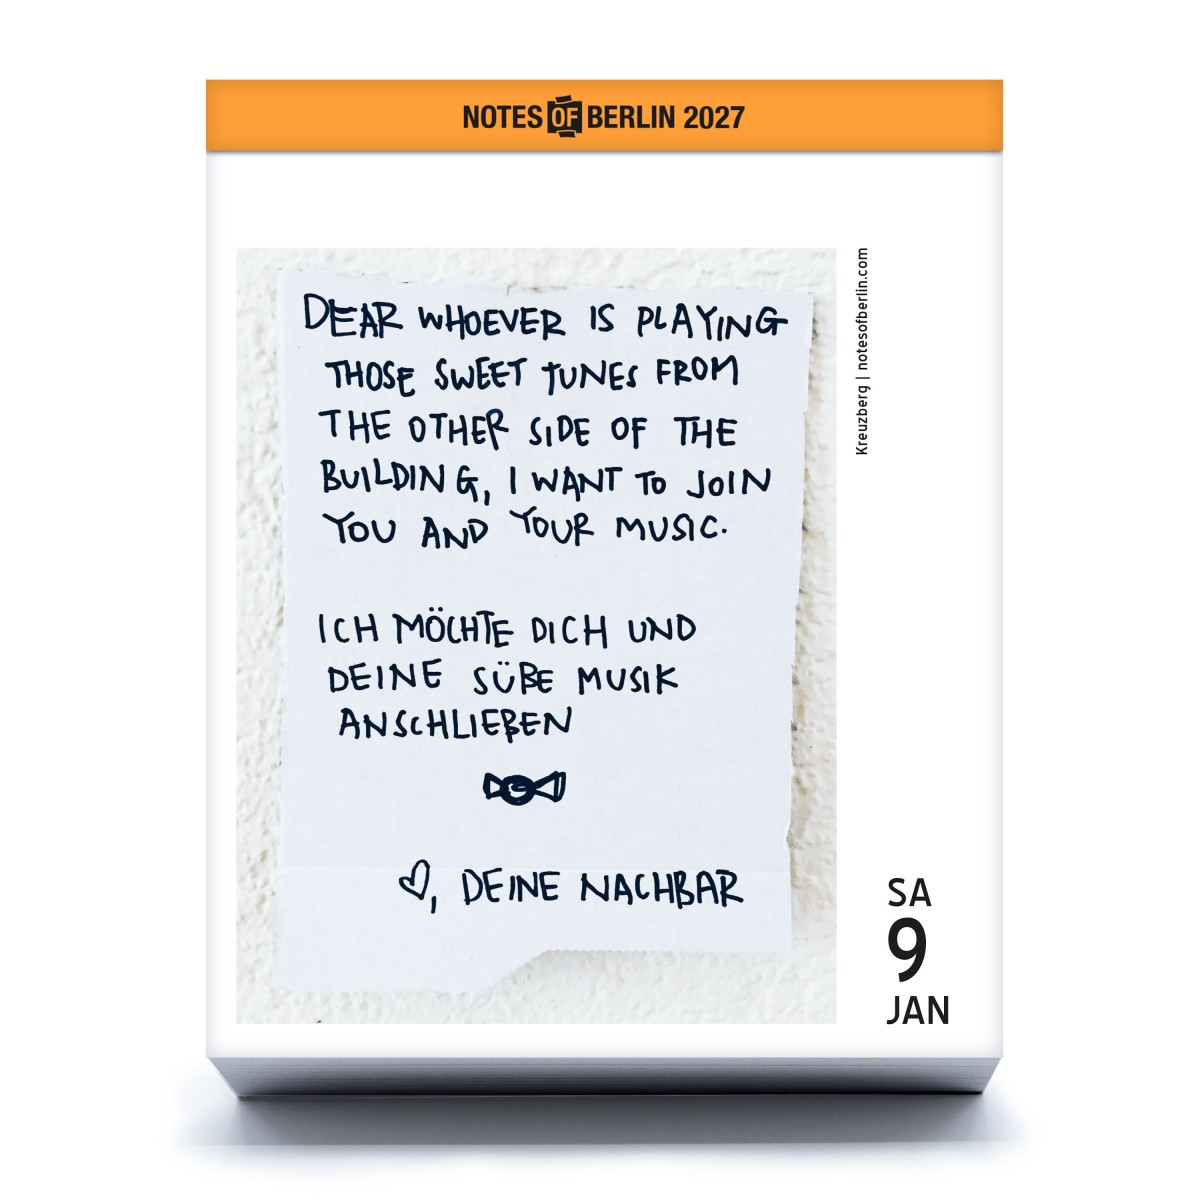 NOTES OF BERLIN 2027
DEAR WHOEVER IS PLAYING
THOSE SWEET TUNES FROM
THE OTHER SIDE OF THE
BUILDING, I WANT TO JOIN
YOU AND YOUR MUSIC.
ICH MÖCHTE DICH UND
DEINE SÜßE MUSIK
ANSCHLIEßEN
♡, DEINE NACHBAR
Kreuzberg | notesofberlin.com
SA
9
JAN